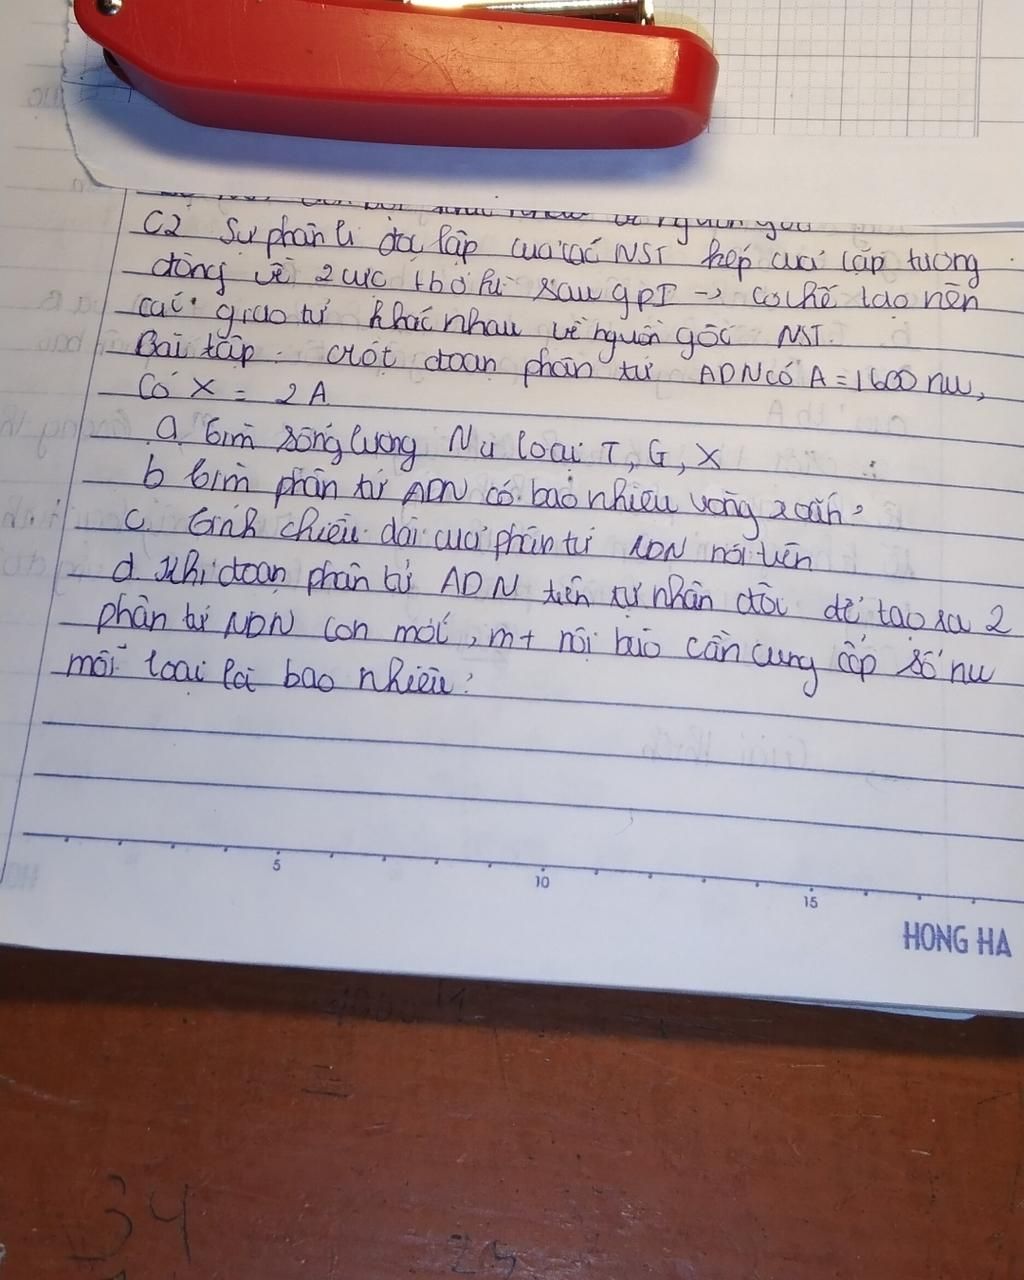 C2 Sự phân li độc lập của các NST kép của cặp tương
đồng về 2 cực tb ở kì sau gpI → cơ chế tạo nên
các giao tử khác nhau về nguồn gốc NST.
Bài tập: Một đoạn phân tử ADN có A = 1600 nu,
Có X = 2A
a. tìm số lượng Nu loại T, G, X
b tìm phân tử ADN có bao nhiêu vòng xoắn?
c. tính chiều dài của phân tử ADN nói trên
d. Khi đoạn phân tử ADN trên tự nhân đôi để tạo ra 2
phân tử ADN con mới, mt nội bào cần cung cấp số nu
mỗi loại là bao nhiêu?
5 10 15
HONG HA
34